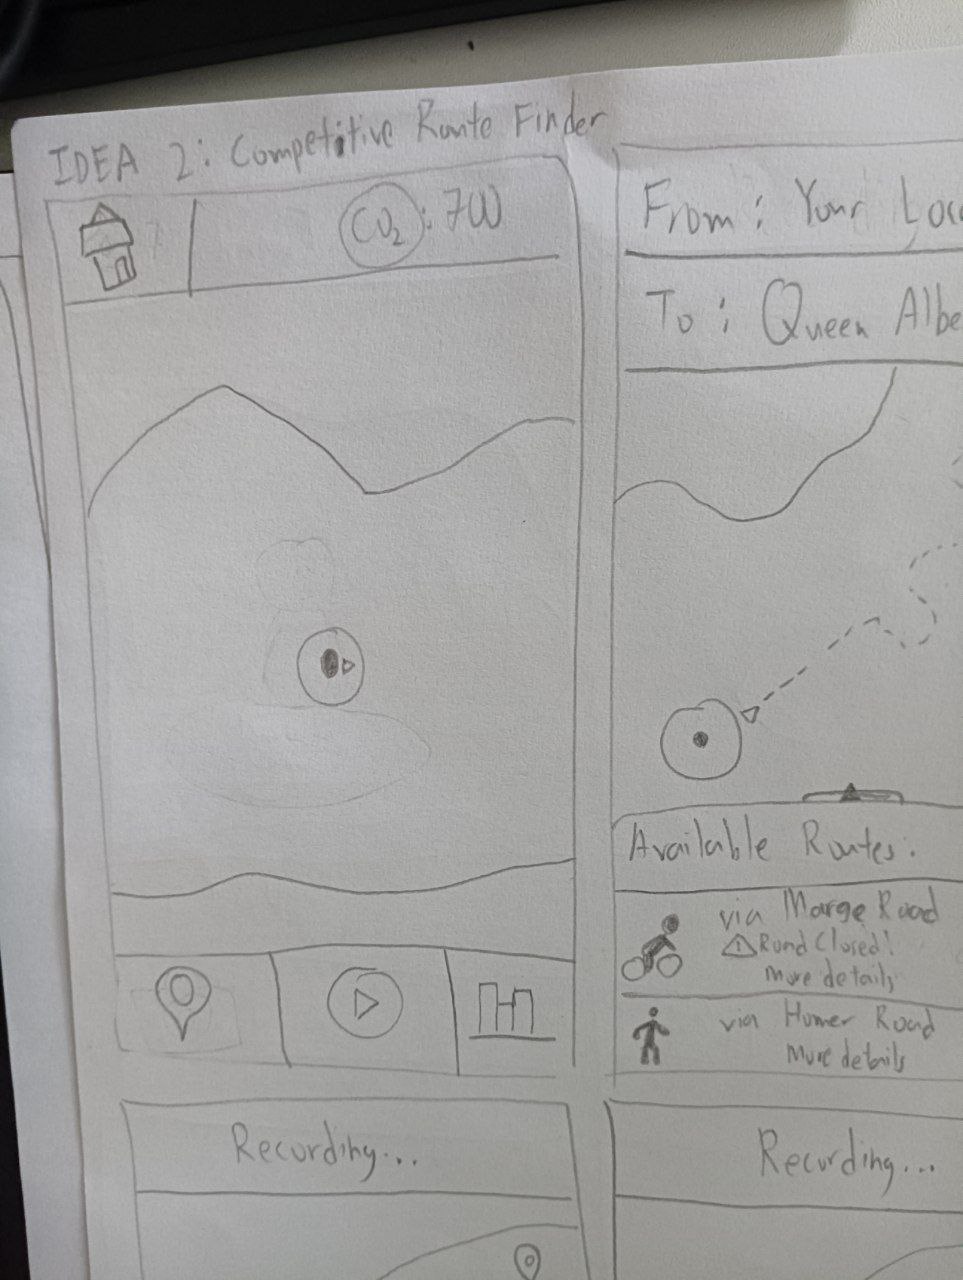 IDEA 2: Competitive Route Finder
CO2: 700
From: Your Loc
To: Queen Albe
Available Routes:
via Marge Road
Road Closed!
More details
via Homer Road
More details
Recording...
Recording...